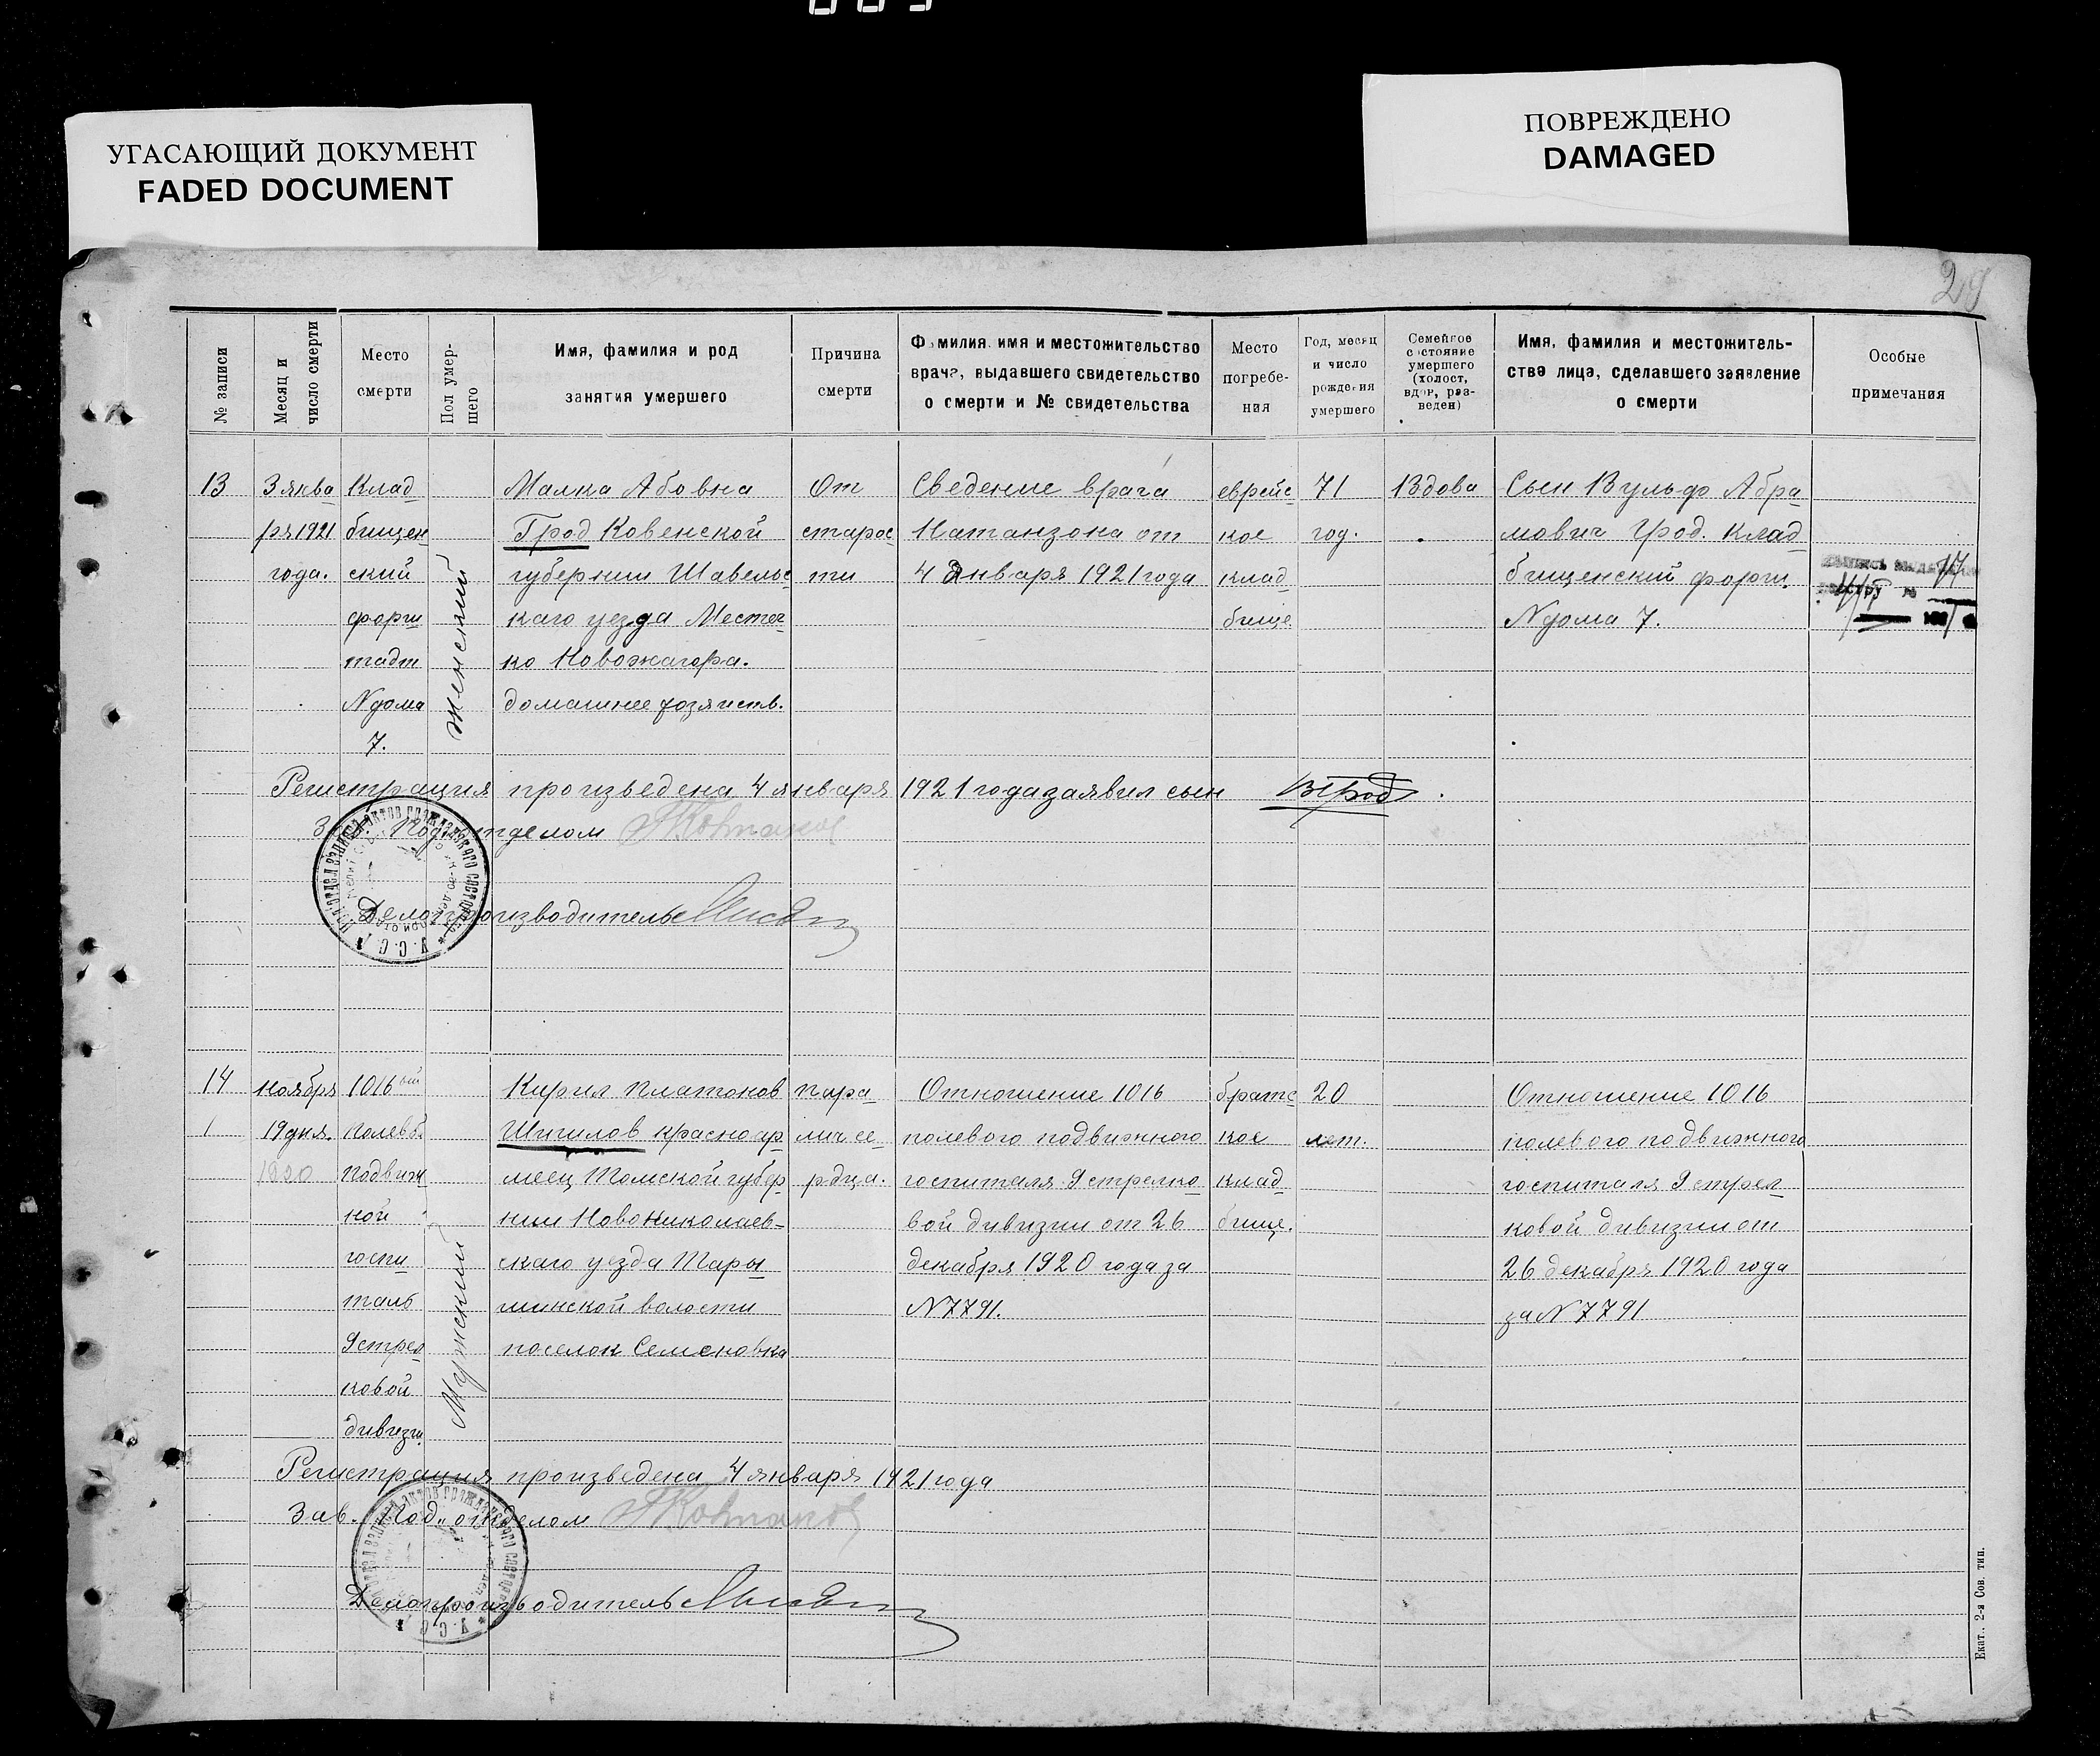 УГАСАЮЩИЙ ДОКУМЕНТ
FADED DOCUMENT
ПОВРЕЖДЕНО
DAMAGED
29
№ записи
Месяц и
число смерти
Место
смерти
Пол умер-
шего
Имя, фамилия и род
занятия умершего
Причина
смерти
Фамилия, имя и местожительство
врача, выдавшего свидетельство
о смерти и № свидетельства
Место
погребе-
ния
Год, месяц
и число
рождения
умершего
Семейное
состояние
умершего
(холост,
вдов, раз-
веден)
Имя, фамилия и местожитель-
ство лица, сделавшего заявление
о смерти
Особые
примечания
13
3 янва
ря 1921
года.
Клад
бищен
ский
форш
тадт
N дома
7.
женский
Малка Абовна
Грод Ковенской
губернии Шавельс
каго уезда Местеч
ко Новожагора.
домашнее хозяиств.
От
старос
ти
Сведение врача
Натанзона от
4 Января 1921 года
еврейс
кое
клад
бище
71
год.
Вдова
Сын Вульф Абра
мович Грод. Клад
бищенский форш.
N дома 7.
Регистрация произведена 4 января 1921 года заявил сын ВГрод.
Зав. Под отделом
Делопроизводитель
14
ноября
19 дня.
1920
1016 ый
полевб.
подвиж
ной
госпи
таль
9 стрел
ковой
дивизи.
Мужский
Кирил Платонов
Шигилов красноар
меец Томской губер
нии Новониколаев-
скаго уезда Тары
минской волости
поселок Семеновка
пара
лич се
рдца.
Отношение 1016
полевого подвижного
госпиталя 9 стрелко
вой дивизии от 26
декабря 1920 года за
N 7791.
братс
кое
клад
бище.
20
лет.
Отношение 1016
полевого подвижного
госпиталя 9 стрел
ковой дивизии от
26 декабря 1920 года
за N 7791
Регистрация произведена 4 января 1921 года
Зав. Под„отделом
Делопроизводитель
Екат., 2-я Сов. тип.